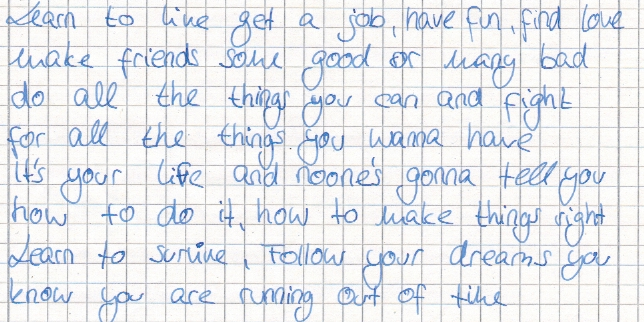 Learn to live get a job, have fun, find love
make friends some good or many bad
do all the things you can and fight
for all the things you wanna have
It's your life and noone's gonna tell you
how to do it, how to make things right
Learn to survive, Follow your dreams you
know you are running out of time